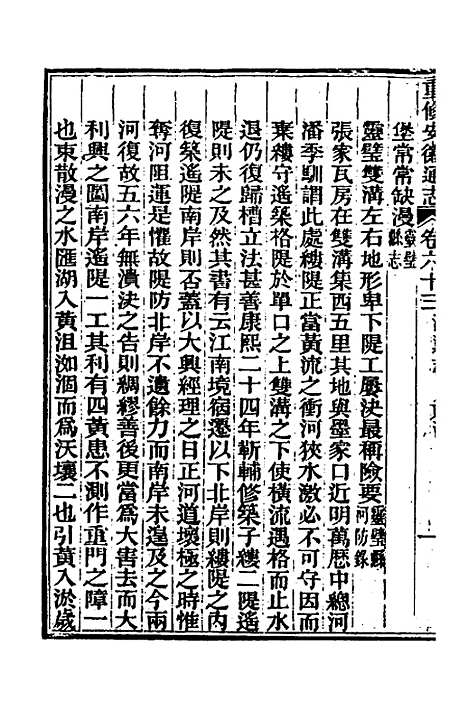 重修安徽通志 卷六十三
堡常常缺漫靈璧縣志
靈璧雙溝左右地形卑下隄工屢決最稱險要靈璧縣河防錄
張家瓦房在雙溝集西五里其地與墨家口近明萬歷中總河
潘季馴謂此處縷隄正當黃流之衝河狹水激必不可守因而
棄縷守遙築格隄於單口之上雙溝之下使橫流遇格而止水
退仍復歸槽立法甚善康熙二十四年靳輔修築子縷二隄遙
隄則未之及然其書有云江南境宿遷以下北岸則縷隄之內
復築遙隄南岸則否蓋以大興經理之日正河道壞極之時惟
奪河阻運是懼故隄防北岸不遺餘力而南岸未遑及之今兩
河復故五六年無潰決之告則綢繆善後更當為大害去而大
利興之圖南岸遙隄一工其利有四黃患不測作重門之障一
也東散漫之水匯湖入黃沮洳涸而為沃壤二也引黃入淤歲